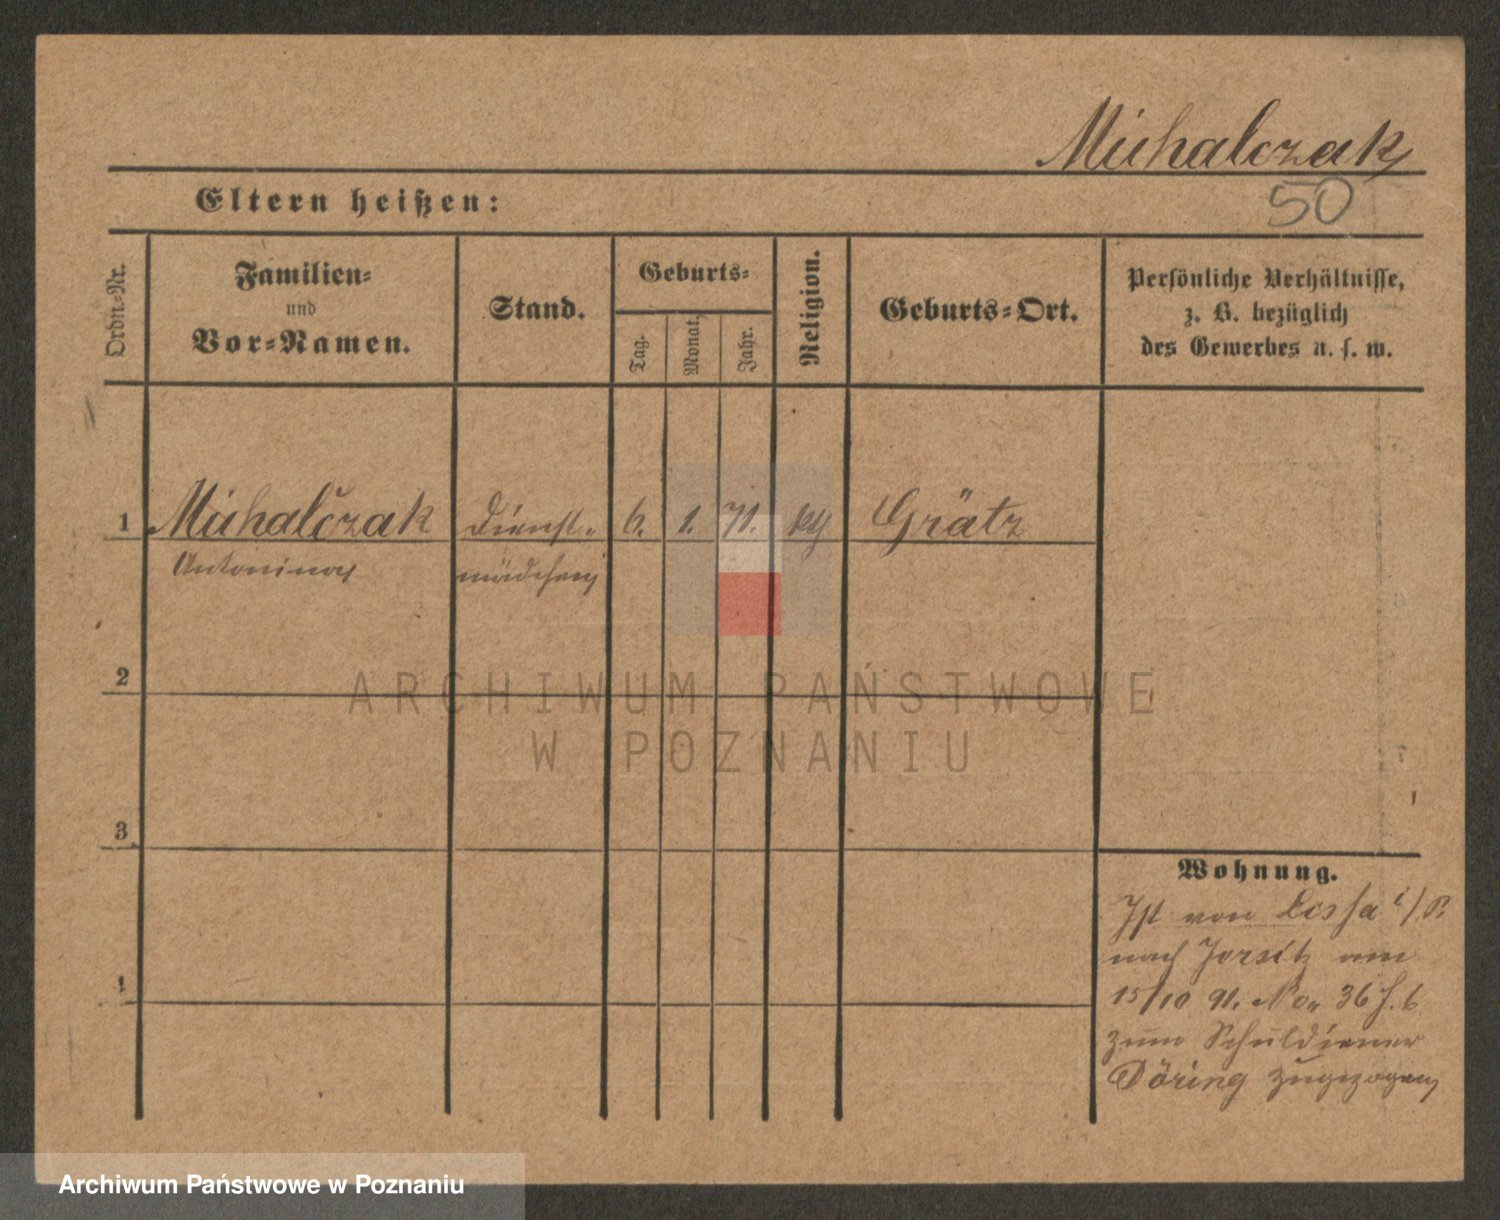 Michalczak
50
Eltern heißen:
Ordn.-Nr.
Familien-
und
Vor-Namen.
Stand.
Geburts-
Tag.
Monat.
Jahr.
Religion.
Geburts-Ort.
Persönliche Verhältnisse,
z. B. bezüglich
des Gewerbes u. s. w.
1 Michalczak Dienst- 6. 1. 71. Grätz
Antonina mädchen
2
ARCHIWUM PAŃSTWOWE
W POZNANIU
3
Wohnung.
Ist von Lissa i/P.
nach Jersitz am
15/10 91. No. 36
zum Schuldiener
Döring zugezogen
Archiwum Państwowe w Poznaniu